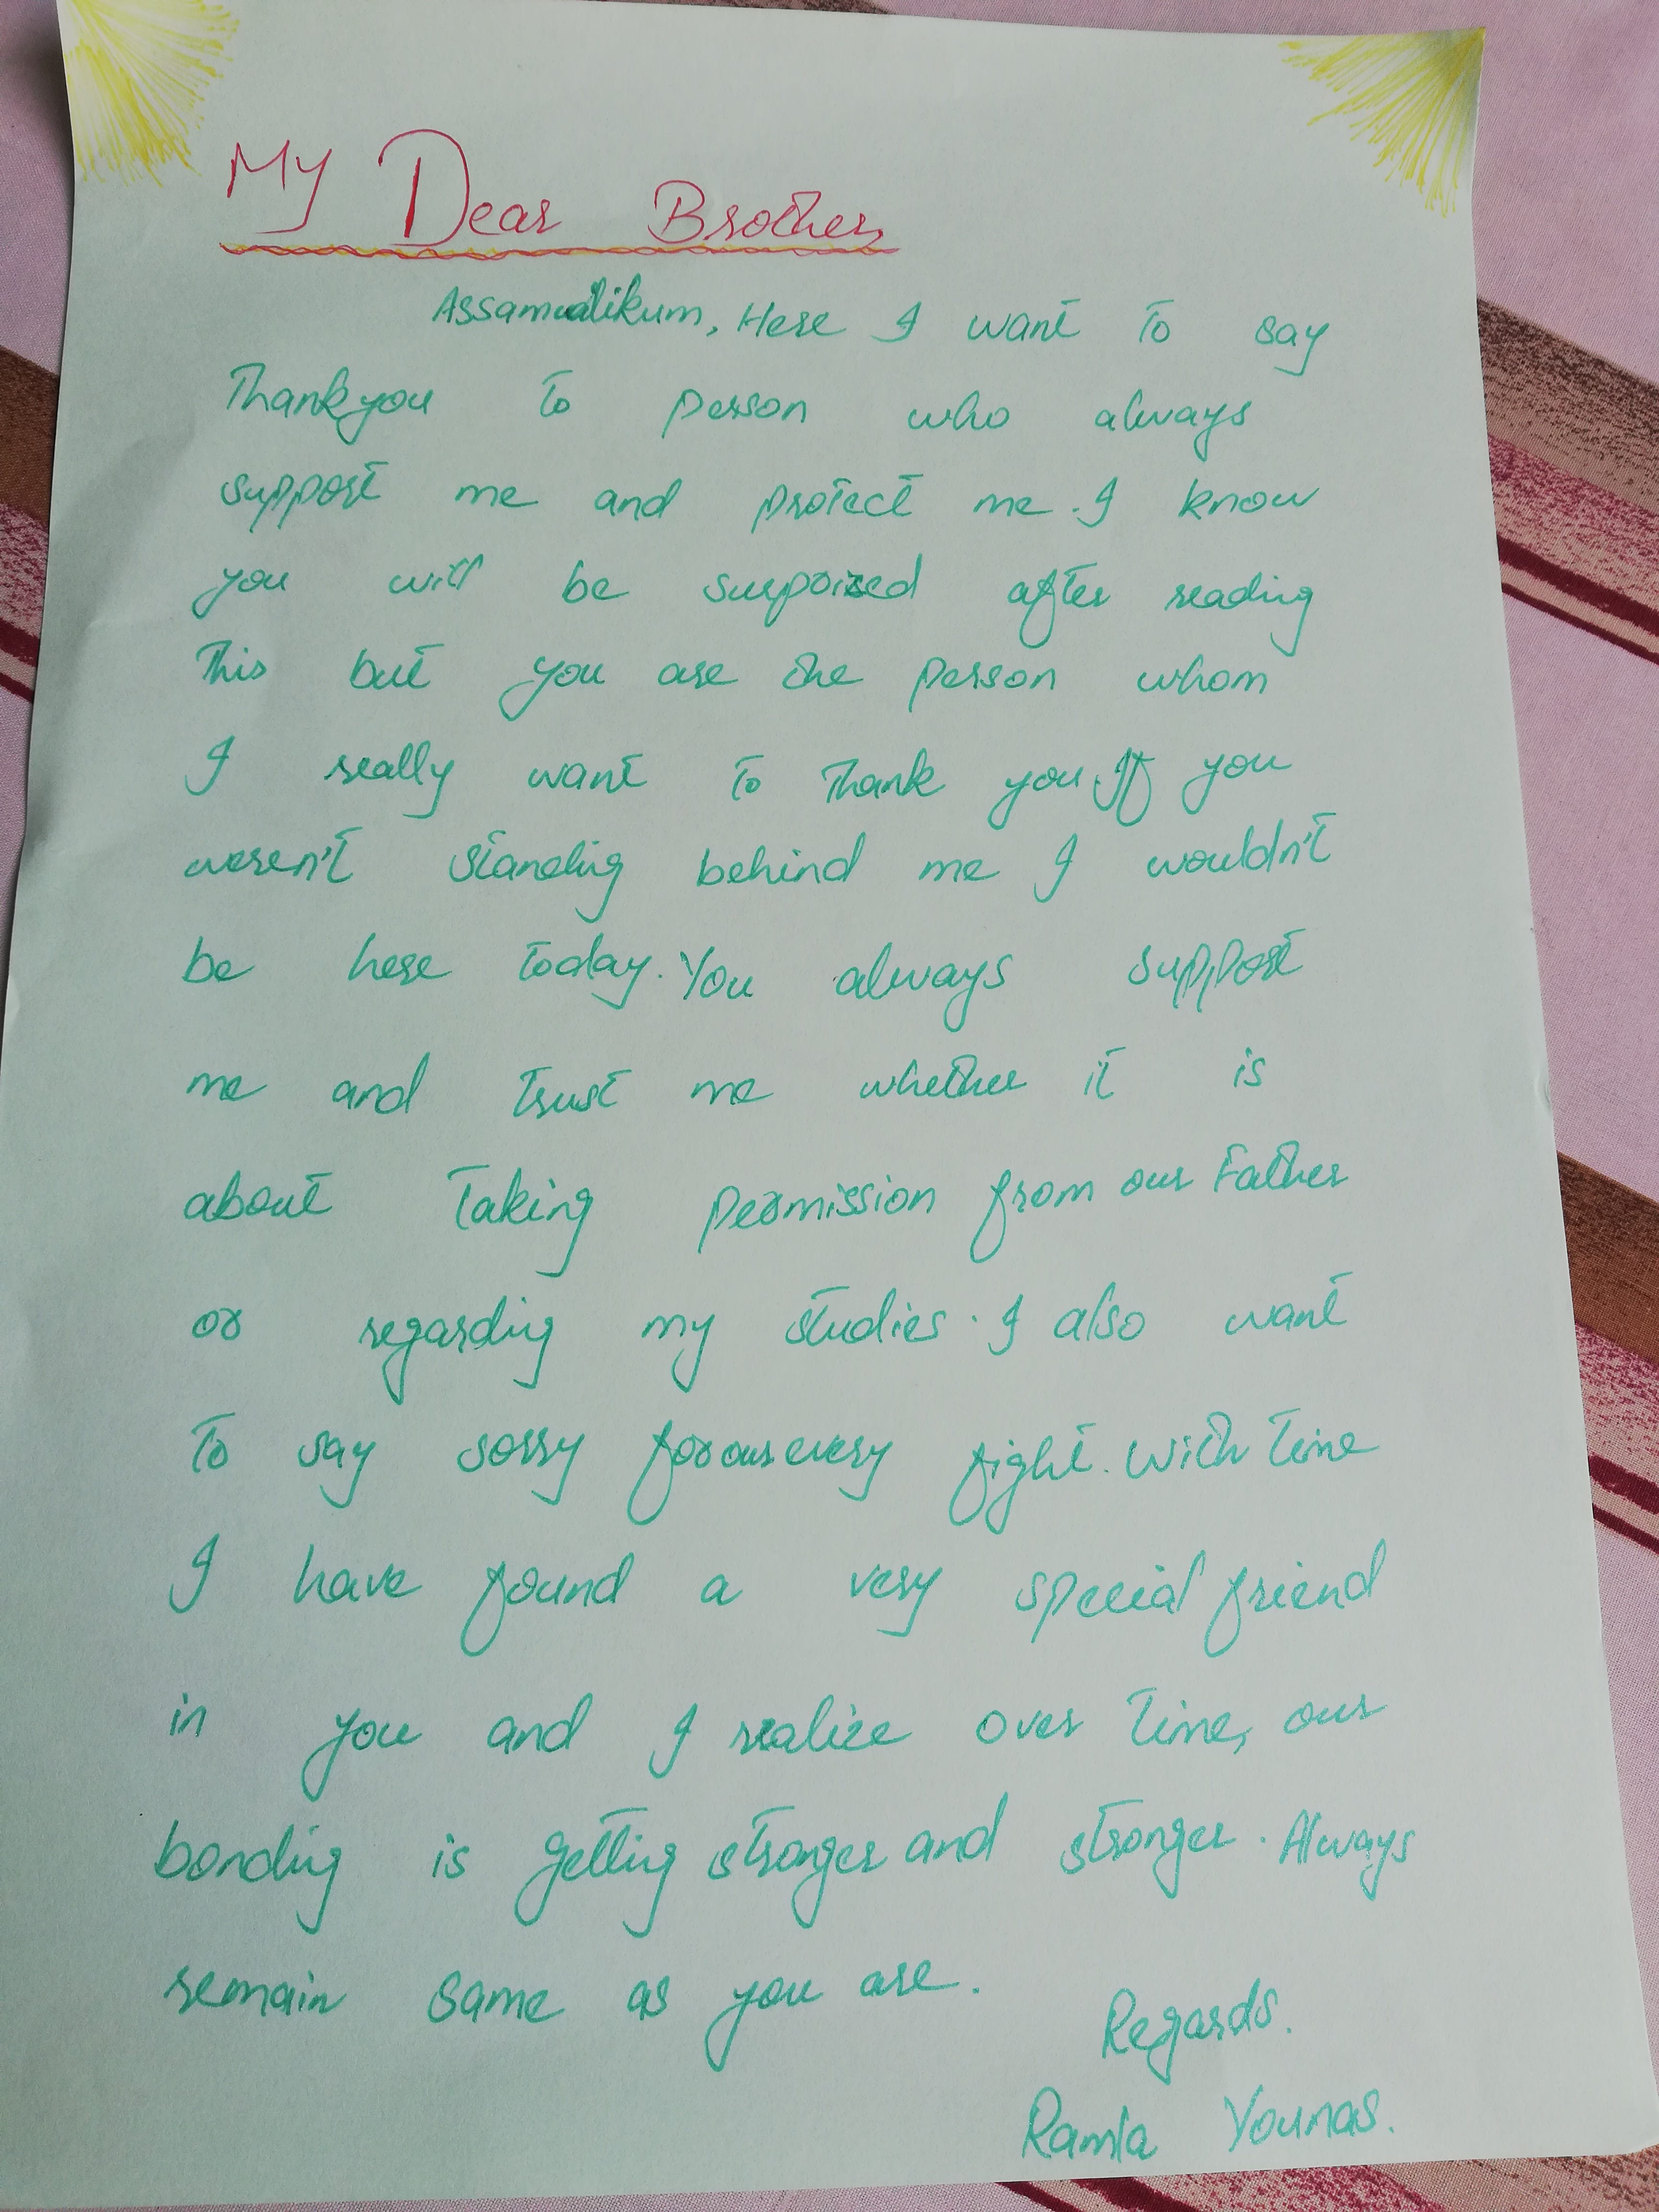 My Dear Brother
Assamualikum, Here I want to say
Thankyou to person who always
support me and protect me. I know
you will be surpoized after reading
This but you are the person whom
I really want to Thank you. If you
weren't standing behind me I wouldn't
be here today. You always support
me and trust me whether it is
about taking permission from our Father
or regarding my studies. I also want
to say sorry for our every fight. With time
I have found a very special friend
in you and I realize over time, our
bonding is getting stronger and stronger. Always
remain same as you are.
Regards.
Ramla Younas.